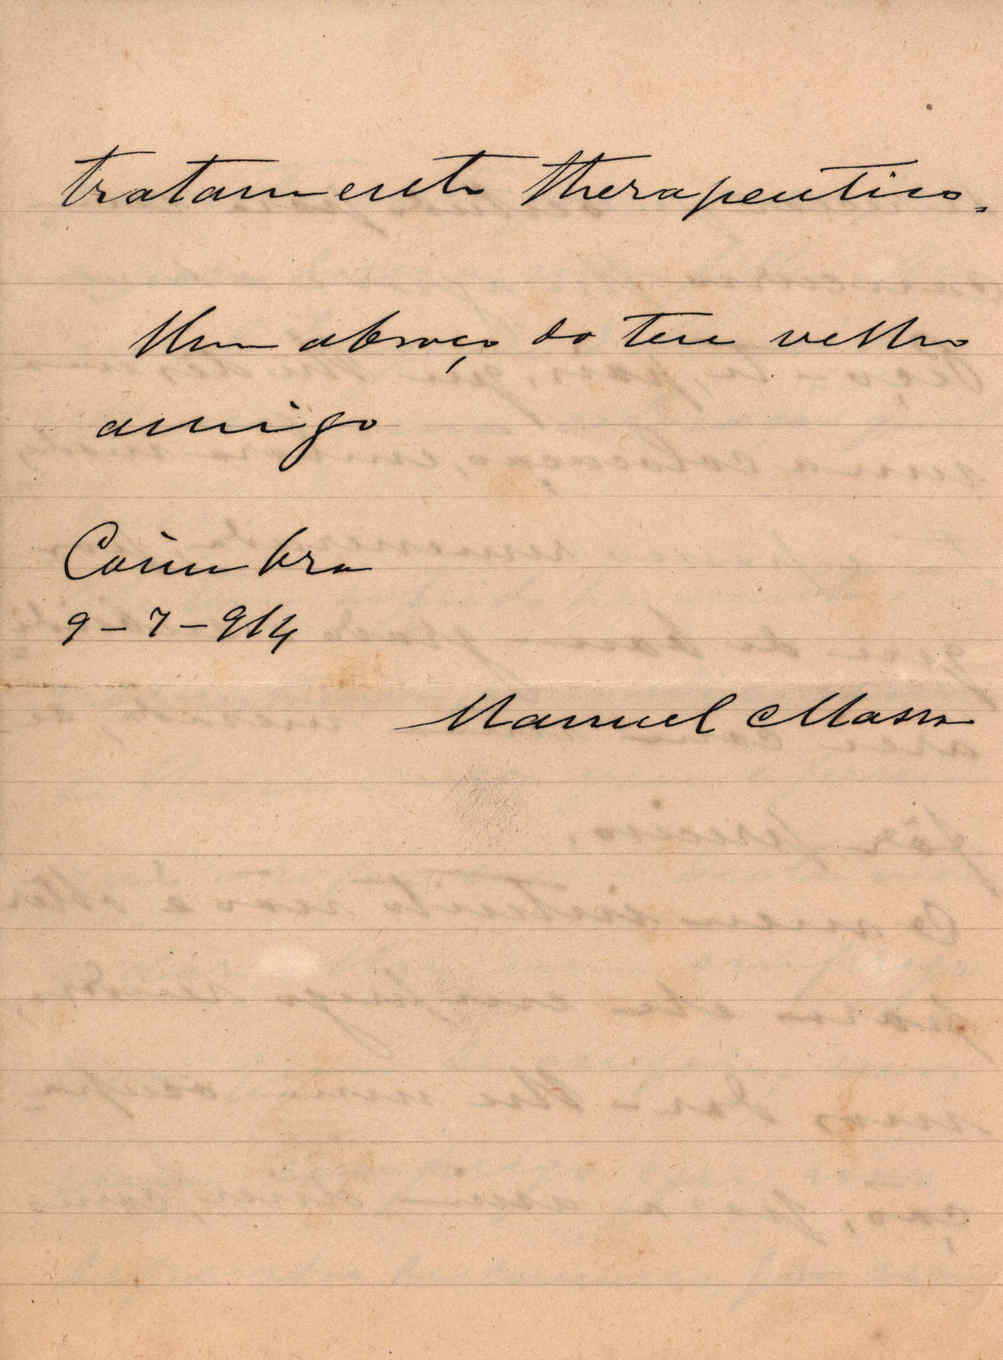 tratamento therapeutico.
Um abraço do teu velho
amigo
Coimbra
9-7-914
Manuel